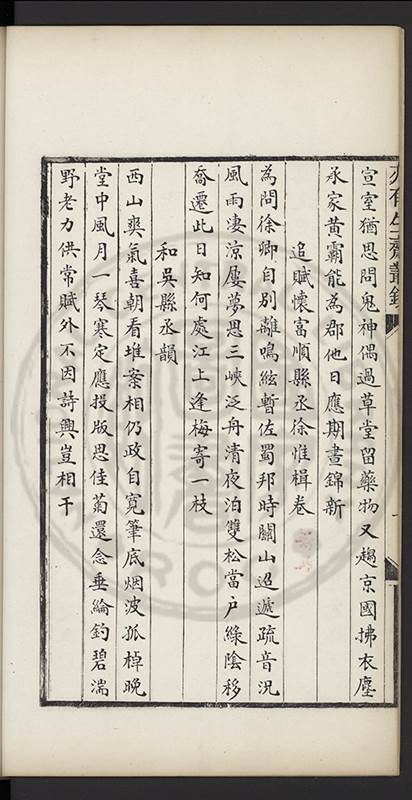 宣室猶思問鬼神偶過草堂留藥物又趨京國拂衣塵
承家黃霸能為郡他日應期晝錦新
追賦懷富順縣丞徐惟楫卷
為問徐卿自別離鳴絃暫佐蜀邦時關山迢遞疏音況
風雨凄涼屢夢思三峽泛舟清夜泊雙松當戶綠陰移
喬遷此日知何處江上逢梅寄一枝
和吳縣丞韻
西山爽氣喜朝看堆案相仍政自寬筆底烟波孤棹晚
堂中風月一琴寒定應投版思佳菊還念垂綸釣碧湍
野老力供常賦外不因詩興豈相干